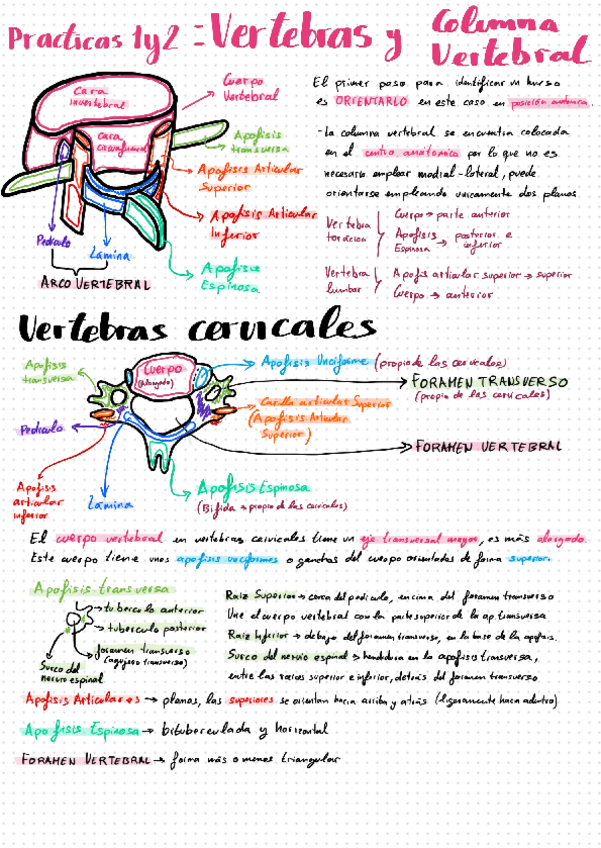 Practicas 1 y 2 = Vertebras y Columna Vertebral
Cara invertebral
Cara circunferencial
Cuerpo Vertebral
Apofisis transversa
Apofisis Articular Superior
Apofisis Articular Inferior
Apofisis Espinosa
Pediculo
Lamina
ARCO VERTEBRAL
El primer paso para identificar un hueso
es ORIENTARLO en este caso en posición anatómica.
- La columna vertebral se encuentra colocada
en el centro anatomico por lo que no es
necesario emplear medial-lateral, puede
orientarse empleando unicamente dos planos
Vertebra toracica
Cuerpo → parte anterior
Apofisis Espinosa → posterior e inferior
Vertebra lumbar
Apofis articular superior → superior
Cuerpo → anterior
Vertebras cervicales
Apofisis transversa
Cuerpo
(alargado)
Apofisis Unciforme (propio de las cervicales)
FORAMEN TRANSVERSO
(propio de las cervicales)
Carilla articular Superior
(Apofisis Articular
Superior)
Pediculo
FORAMEN VERTEBRAL
Apofisis articular inferior
Lamina
Apofisis Espinosa
(Bifida → propio de las cervicales)
El cuerpo vertebral en vertebras cervicales tiene un eje transversal mayor, es más alargado.
Este cuerpo tiene unas apofisis unciformes o ganchos del cuerpo orientados de forma superior.
Apofisis transversa
tuberculo anterior
tuberculo posterior
foramen transverso
(agujero transverso)
Surco del nervio espinal
Raiz Superior → cerca del pediculo, encima del foramen transverso
Une el cuerpo vertebral con la parte superior de la ap. transversa
Raiz Inferior → debajo del foramen transverso, en la base de la apofisis.
Surco del nervio espinal → hendidura en la apofisis transversa,
entre las raices superior e inferior, detrás del foramen transverso
Apofisis Articulares → planas, las superiores se orientan hacia arriba y atrás (ligeramente hacia adentro)
Apofisis Espinosa → bituberculada y horizontal
FORAMEN VERTEBRAL → forma más o menos triangular